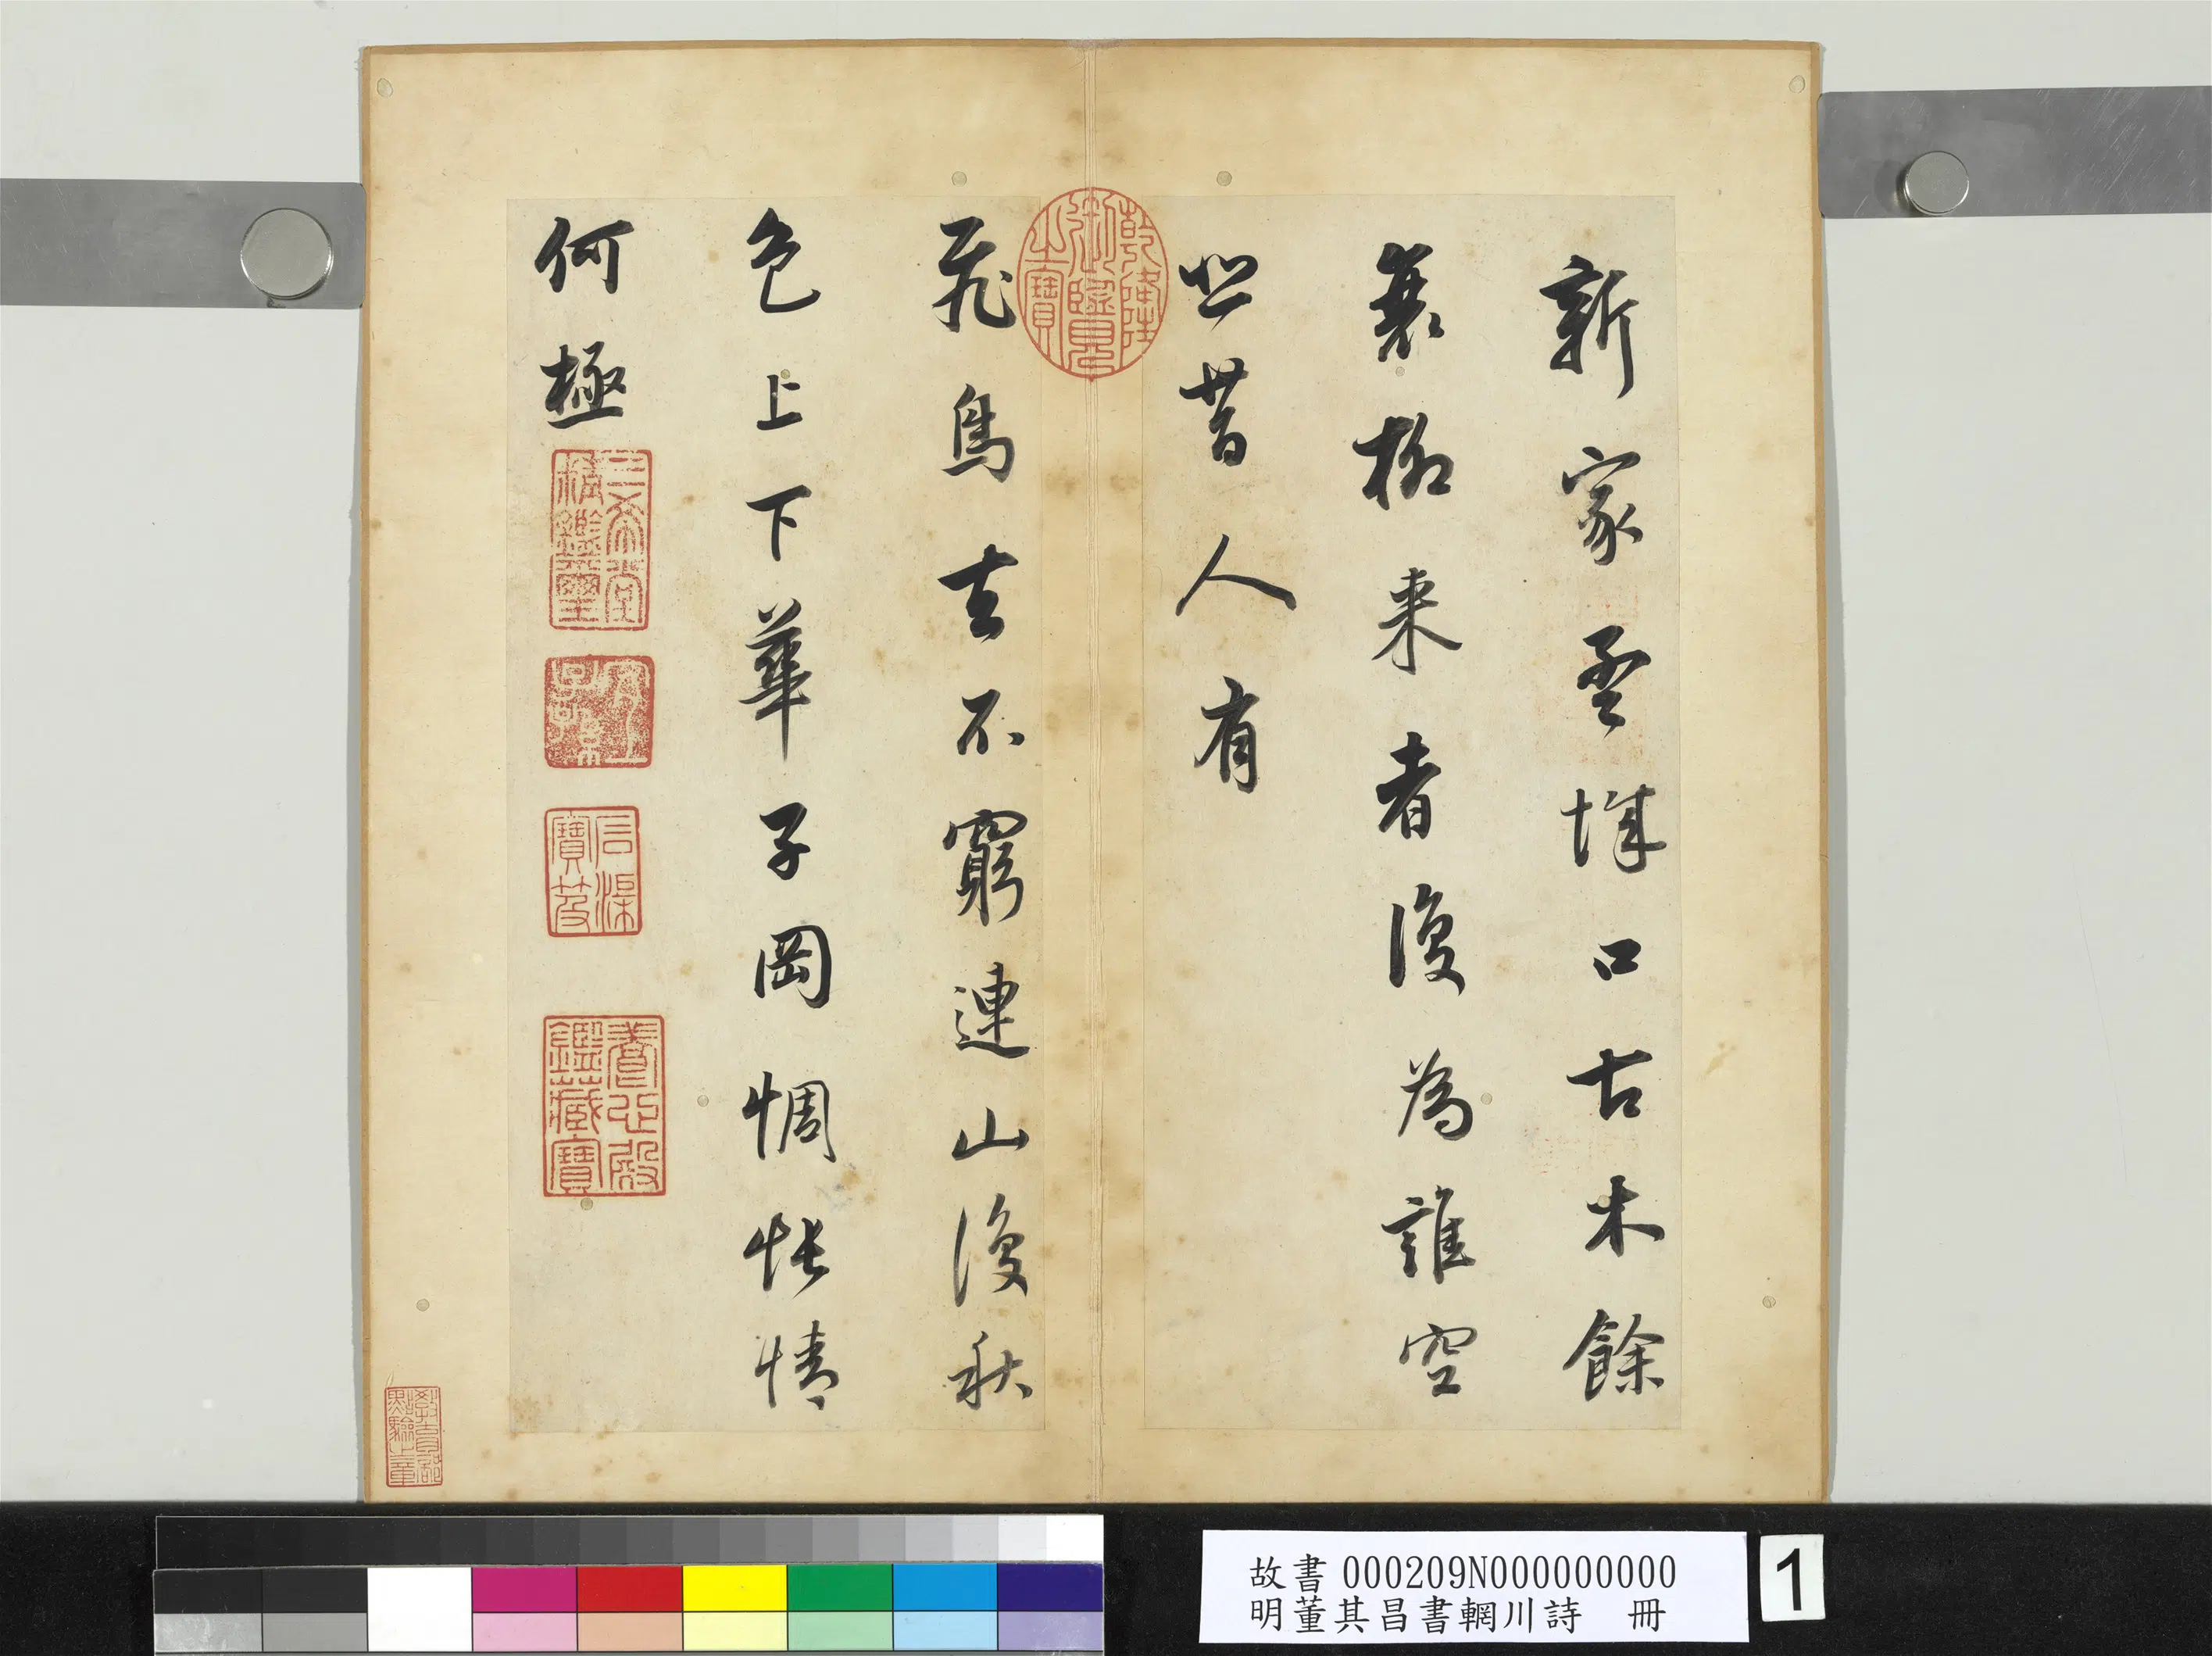 新家孟城口古木餘
衰柳来者復為誰空
悲昔人有
乾隆御覽之寶
飛鳥去不窮連山復秋
色上下華子岡惆悵情
何極
三希堂精鑑璽
宜子孫
石渠寶笈
養心殿鑑藏寶
教育部點驗之章
故書 000209N000000000
明董其昌書輞川詩 冊
1